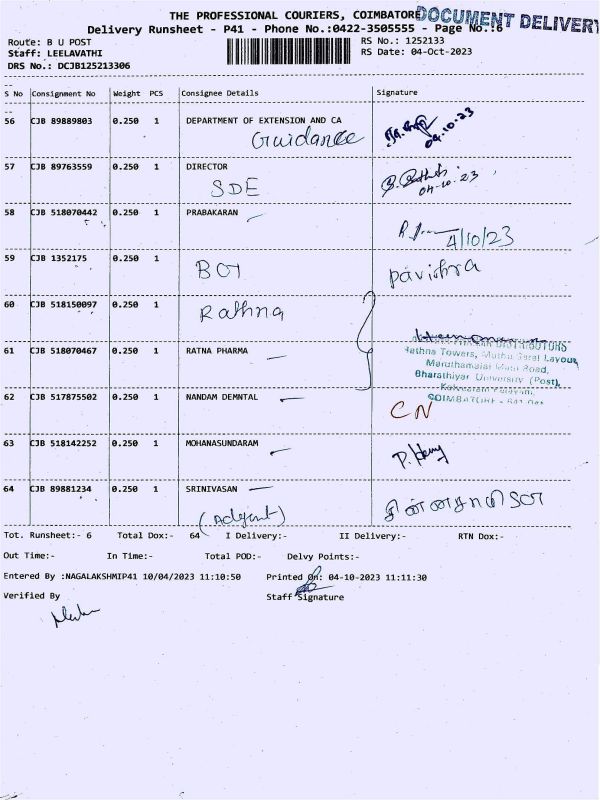 THE PROFESSIONAL COURIERS, COIMBATORE
DOCUMENT DELIVERY
Delivery Runsheet - P41 - Phone No.:0422-3505555 - Page No.:6
Route: B U POST
RS No.: 1252133
Staff: LEELAVATHI
RS Date: 04-Oct-2023
DRS No.: DCJB125213306
S No Consignment No Weight PCS Consignee Details Signature
56 CJB 89889803 0.250 1 DEPARTMENT OF EXTENSION AND CA
Guidance 04.10.23
57 CJB 89763559 0.250 1 DIRECTOR
SDE 04-10-23
58 CJB 518070442 0.250 1 PRABAKARAN
4/10/23
59 CJB 1352175 0.250 1
BOI pavithra
60 CJB 518150097 0.250 1
Rathna
61 CJB 518070467 0.250 1 RATNA PHARMA
DISTRIBUTORS
Rathna Towers, Layout,
Maruthamalai Main Road,
Bharathiyar University (Post),
COIMBATORE
62 CJB 517875502 0.250 1 NANDAM DEMNTAL
CN
63 CJB 518142252 0.250 1 MOHANASUNDARAM
64 CJB 89881234 0.250 1 SRINIVASAN
Tot. Runsheet:- 6 Total Dox:- 64 I Delivery:- II Delivery:- RTN Dox:-
Out Time:- In Time:- Total POD:- Delvy Points:-
Entered By :NAGALAKSHMIP41 10/04/2023 11:10:50 Printed On: 04-10-2023 11:11:30
Verified By Staff Signature